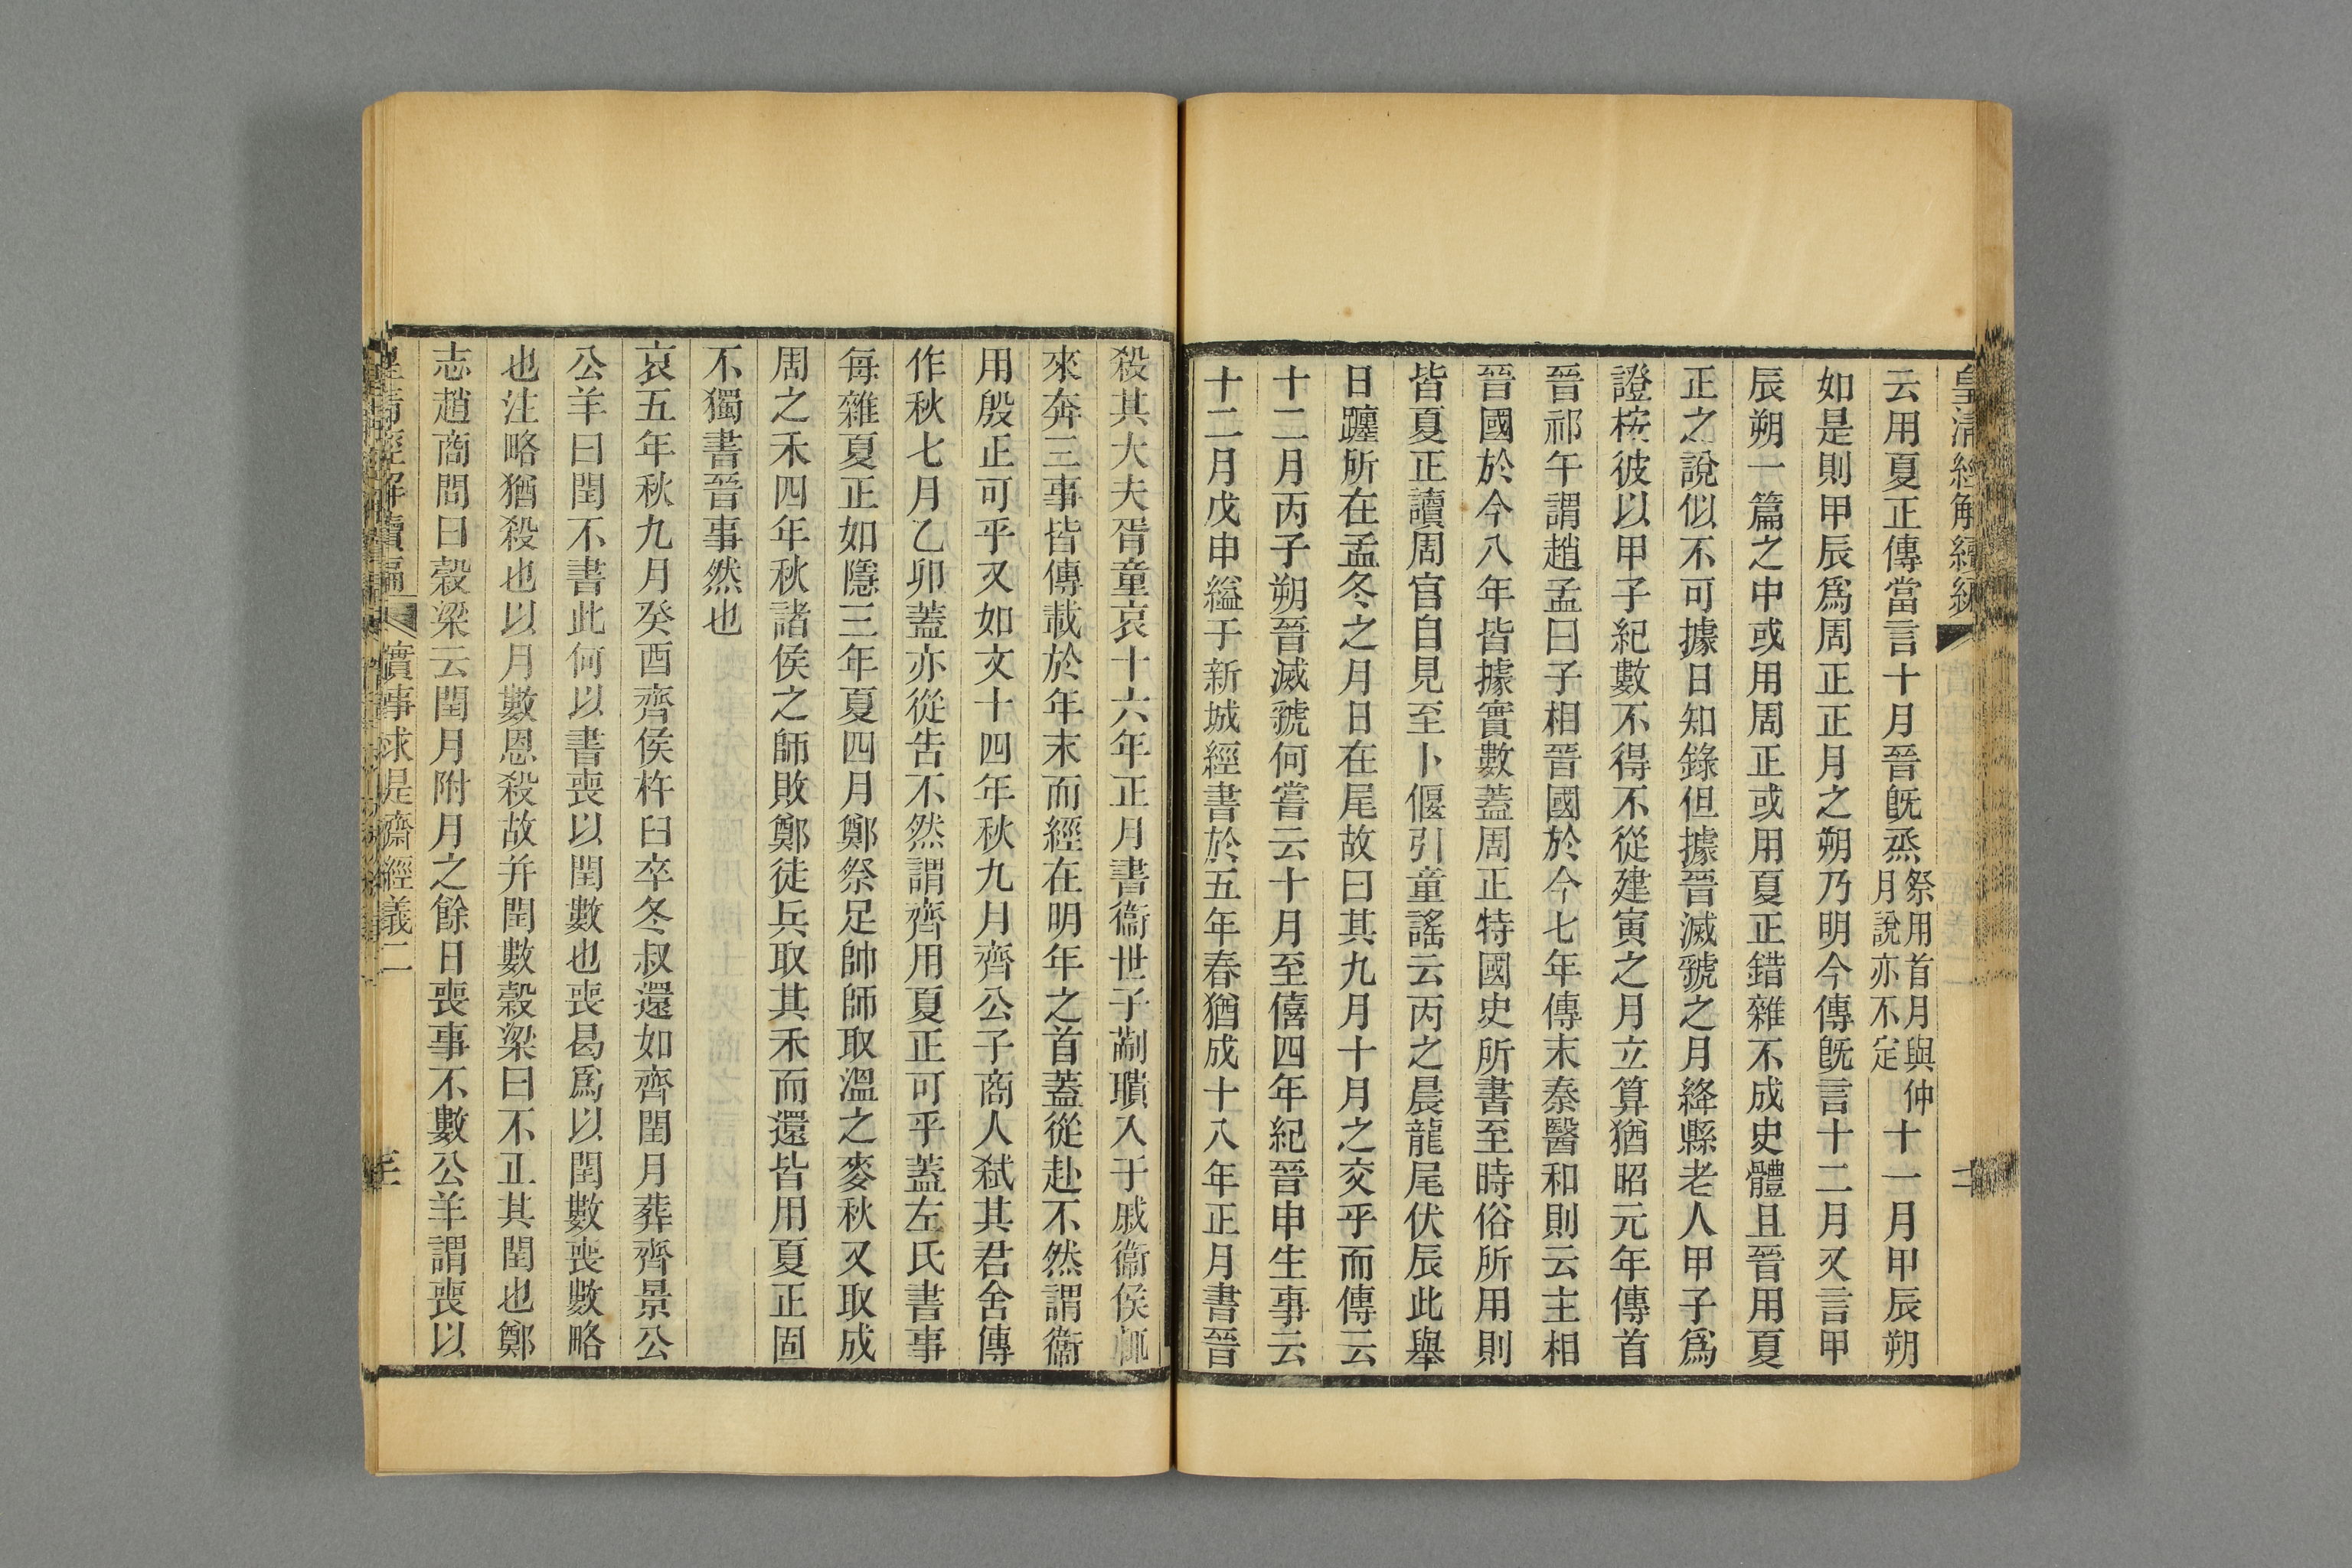 皇清經解續編
二
云用夏正傳當言十月晉旣烝祭用首月與仲月說亦不定十一月甲辰朔
如是則甲辰爲周正正月之朔乃明今傳旣言十二月又言甲
辰朔一篇之中或用周正或用夏正錯雜不成史體且晉用夏
正之說似不可據日知錄但據晉滅虢之月絳縣老人甲子爲
證桉彼以甲子紀數不得不從建寅之月立算猶昭元年傳首
晉祁午謂趙孟曰子相晉國於今七年傳末秦醫和則云主相
晉國於今八年皆據實數蓋周正特國史所書至時俗所用則
皆夏正讀周官自見至卜偃引童謠云丙之晨龍尾伏辰此舉
日躔所在孟冬之月日在尾故曰其九月十月之交乎而傳云
十二月丙子朔晉滅虢何嘗云十月至僖四年紀晉申生事云
十二月戊申縊于新城經書於五年春猶成十八年正月書晉
殺其大夫胥童哀十六年正月書衞世子蒯聵入于戚衞侯輒
來奔三事皆傳載於年末而經在明年之首蓋從赴不然謂衞
用殷正可乎又如文十四年秋九月齊公子商人弒其君舍傳
作秋七月乙卯蓋亦從告不然謂齊用夏正可乎蓋左氏書事
每雜夏正如隱三年夏四月鄭祭足帥師取溫之麥秋又取成
周之禾四年秋諸侯之師敗鄭徒兵取其禾而還皆用夏正固
不獨書晉事然也
哀五年秋九月癸酉齊侯杵臼卒冬叔還如齊閏月葬齊景公
公羊曰閏不書此何以書喪以閏數也喪曷爲以閏數喪數略
也注略猶殺也以月數恩殺故并閏數穀梁曰不正其閏也鄭
志趙商問曰穀梁云閏月附月之餘日喪事不數公羊謂喪以
皇清經解續編
實事求是齋經義二
三